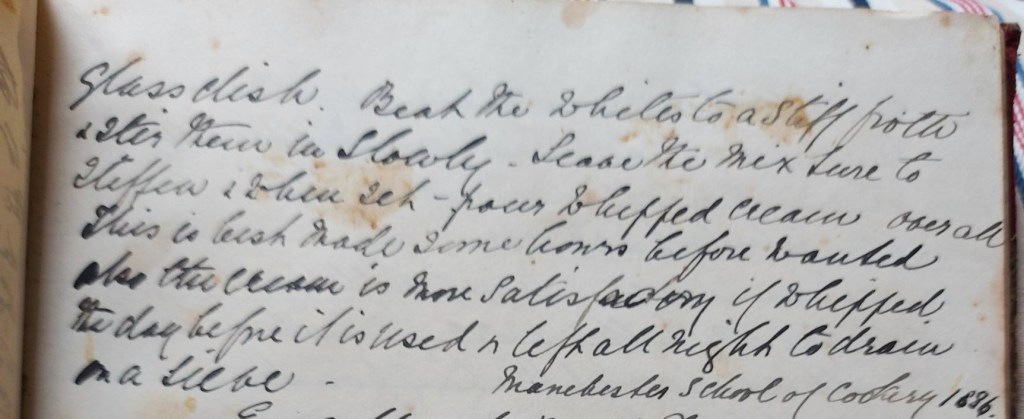 Glass dish. Beat the Whites to a Stiff froth
& Stir them in Slowly - Leave the mixture to
Stiffen & when set - pour Whipped Cream over all
This is best made some hours before wanted
also the cream is more satisfactory if whipped
the day before it is used & left all night to drain
on a Sieve -
Manchester School of Cookery